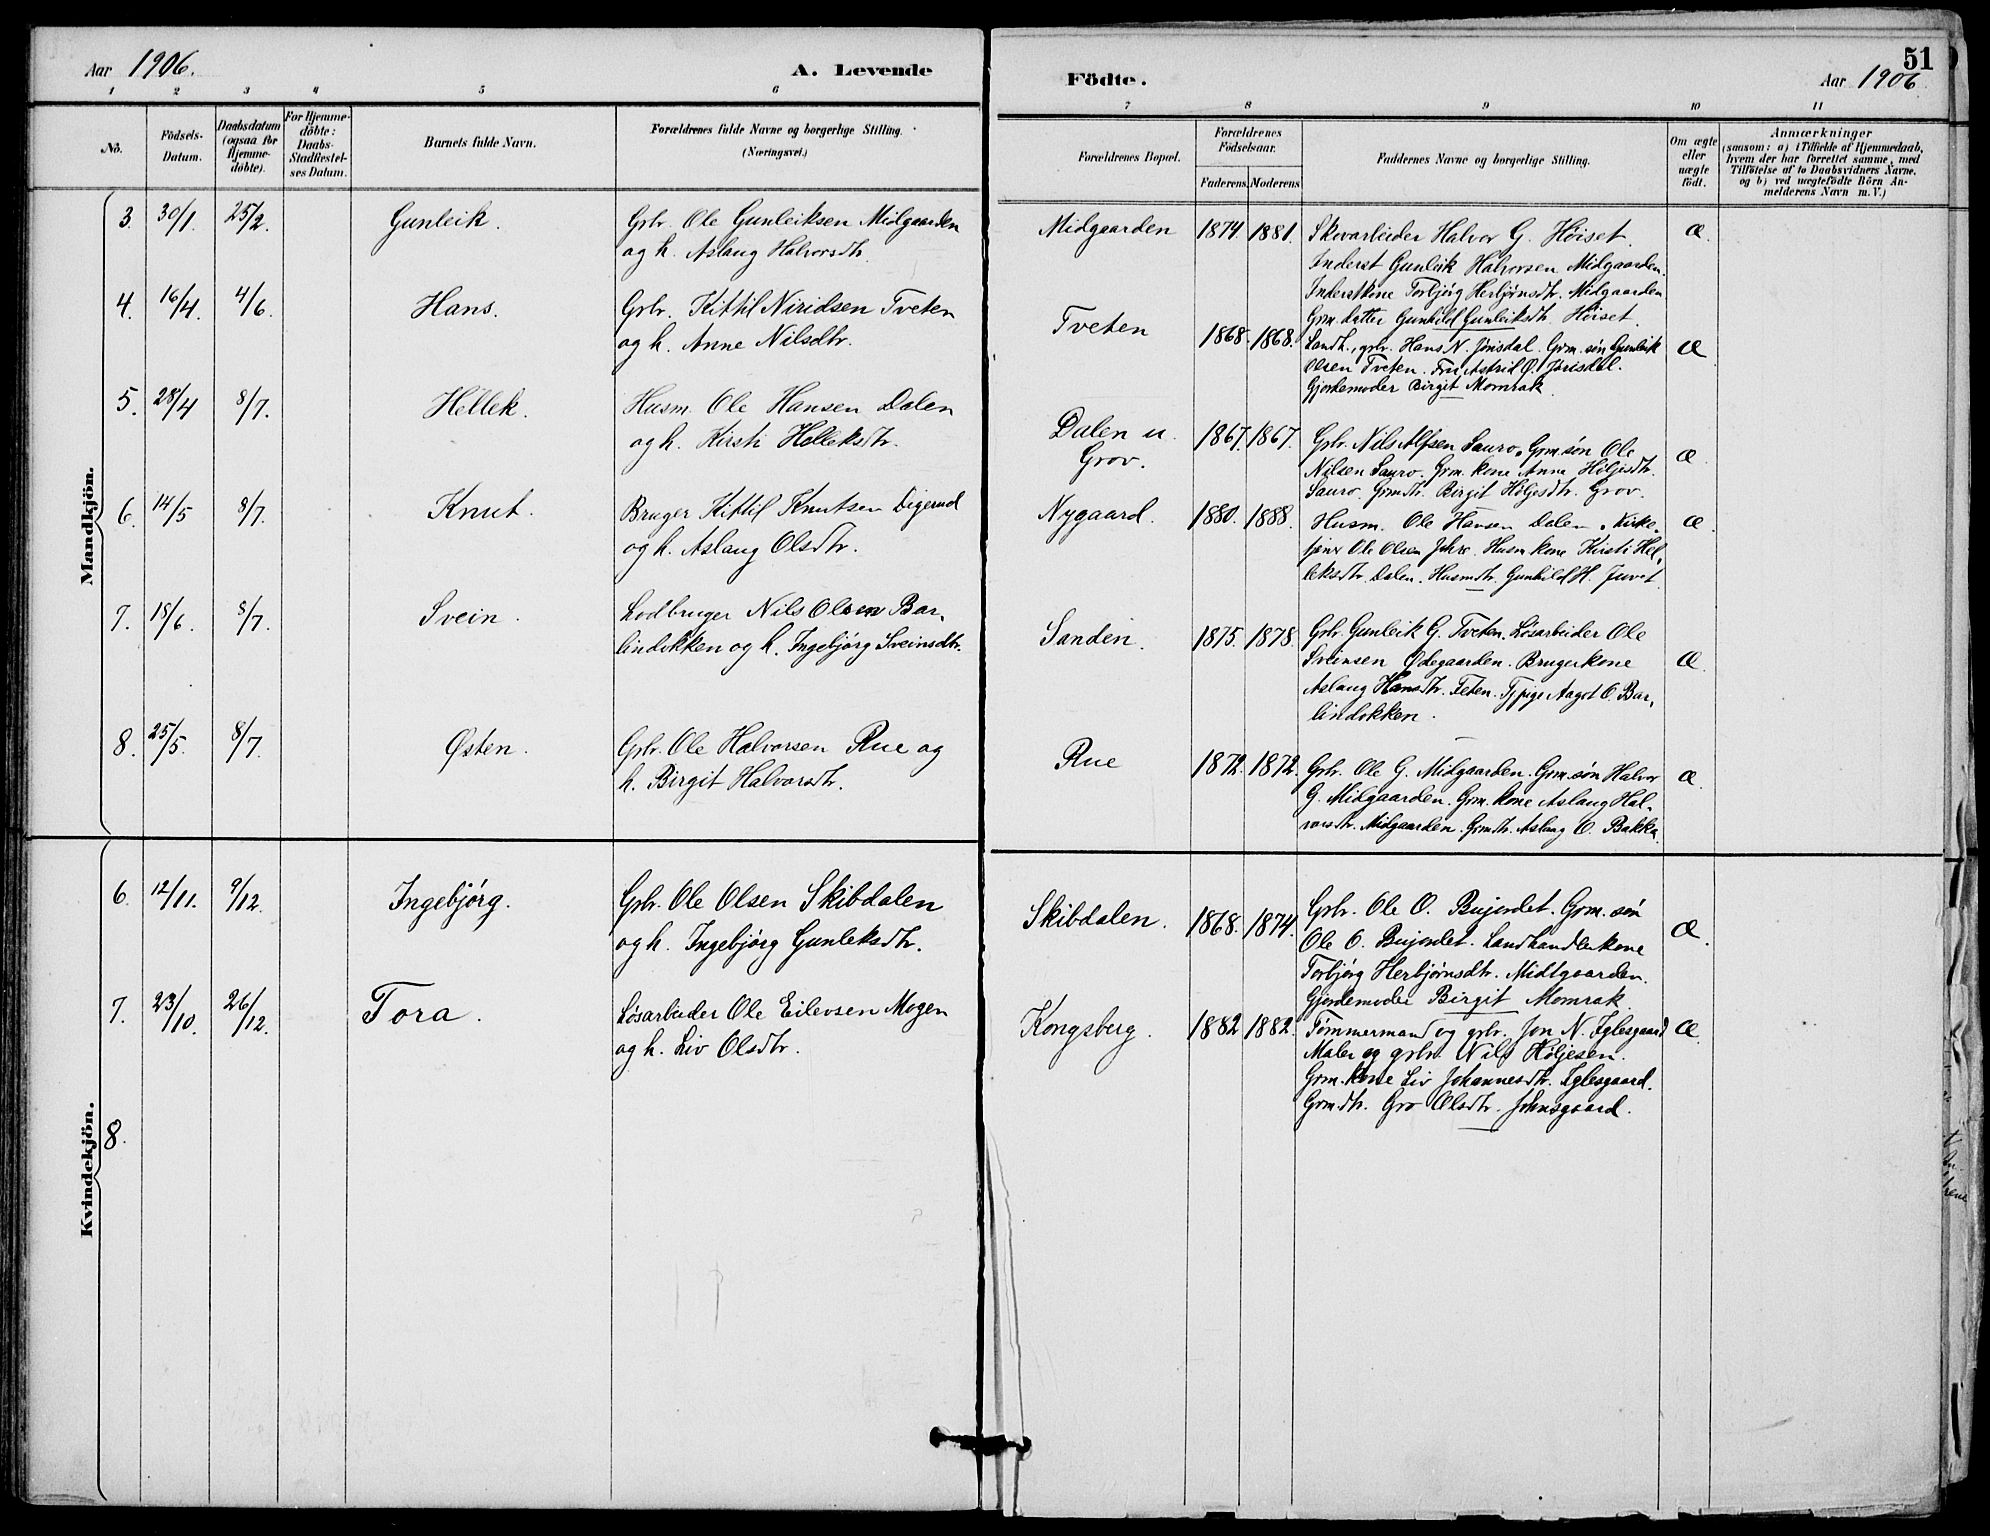 Aar 1906.
A. Levende
Födte.
51
Aar 1906
1 2 3 4 5 6
7 8 9 10 11
No.
Födsels-Datum.
Daabsdatum (ogsaa for Hjemme-døbte).
For Hjemme-døbte: Daabs-Stadfæstel-ses Datum.
Barnets fulde Navn.
Forældrenes fulde Navne og borgerlige Stilling. (Næringsvei.)
Forældrenes Bopæl.
Forældrenes Födselsaar.
Faderens Moderens
Faddernes Navne og borgerlige Stilling.
Om ægte eller uægte födt.
Anmærkninger
(saasom: a) i Tilfælde af Hjemmedaab,
hvem der har forrettet samme, med
Tilföielse af to Daabsvidners Navne,
og b) ved uægtefödte Börn An-
melderens Navn m. V.)
Mandkjön.
3. 30/1. 25/2. Gunleik. Grbr. Ole Gunleiksen Midgaarden
og h. Aslaug Halvorsdtr.
Midgaarden 1874. 1881. Skovarbeider Halvor G. Höiset. Æ.
Inderst Gunleik Halvorsen Midgaarden.
Inderstkone Torbjörg Herbjørnsdtr. Midgaarden
Grm. datter Gunhild Gunleiksdtr. Höiset.
4. 16/4. 4/6. Hans. Grbr. Kittil Niridsen Tveten
og h. Anne Nilsdtr.
Tveten 1868. 1868. Landh., grbr. Hans N. Jörisdal. Grm. sön Gunleik Æ
Olsen Tveten. Fru Astrid O. Jörisdal.
Gjordemoder Birgit Momrak.
5. 28/4 8/7. Hellek. Husm. Ole Hansen Dalen
og h. Kirsti Helleksdtr.
Dalen u. Grov. 1867. 1867. Grbr. Nils Alfsen Sauro. Grm. sön Ole Æ.
Nilsen Sauro. Grm. kone Anne Höljesdtr.
Sauro. Grmdtr. Birgit Höljesdtr. Grov.
6. 14/5 8/7. Knut. Bruger Kittil Knutsen Digerud
og h. Aslaug Olsdtr.
Nygaard. 1880. 1888. Husm. Ole Hansen Dalen. Kirke- Æ.
tjener Ole Olsen Juhre. Husmkone Kirsti Hel-
leksdtr. Dalen. Husmdtr. Gunhild H. Juvet
7. 18/6. 8/7. Svein. Lodbruger Nils Olsen Bar-
lindokken og h. Ingebjörg Sveinsdtr.
Sanden. 1875. 1878. Grbr. Gunleik G. Tveten. Lösarbeider Ole Æ.
Sveinsen Ødegaarden. Brugerkone
Aslaug Hansdtr. Teten. Tj.pige Aagot O. Bar-
lindokken.
8. 25/5. 8/7. Østen. Grbr. Ole Halvorsen Rue og
h. Birgit Halvorsdtr.
Rue 1872. 1872. Grbr. Ole G. Midgaarden. Grm. sön Halvor Æ.
G. Midgaarden. Grm. kone Aslaug Hal-
vorsdtr. Midgaarden. Grmdtr. Aslaug O. Bakka.
Kvindekjön.
6. 12/11. 9/12. Ingebjörg. Grbr. Ole Olsen Skibdalen
og h. Ingebjörg Gunleksdtr.
Skibdalen. 1868. 1874. Grbr. Ole O. Bujordet. Grm. sön Æ.
Ole O. Bujordet. Landhandlerkone
Torbjörg Herbjørnsdtr. Midtgaarden.
Gjordemoder Birgit Momrak.
7. 23/10. 26/12. Tora. Løsarbeider Ole Eilevsen Mogen
og h. Liv Olsdtr.
Kongsberg. 1882 1882. Tömmermand og grbr. Jon N. Iglesgaard Æ.
Maler og grbr. Nils Höljesen.
Grm. kone Liv Johannesdtr. Iglesgaard.
Grmdtr. Gro Olsdtr. Johnsgaard.
8.